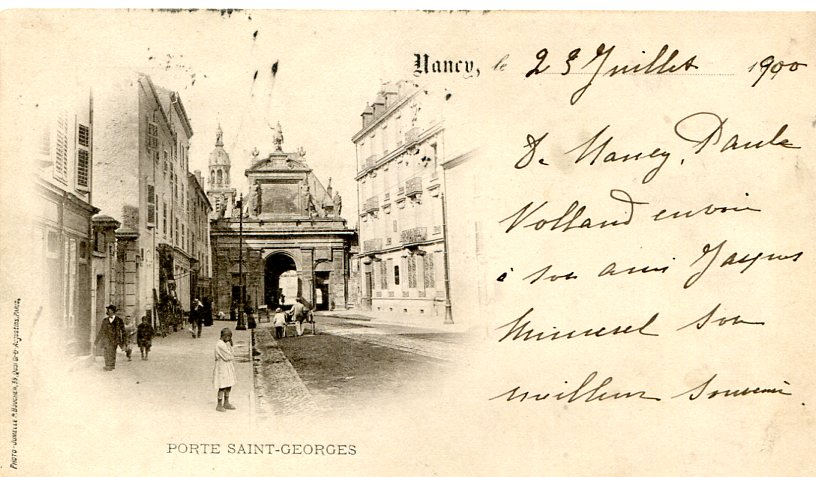 Nancy, le 23 Juillet 1900
De Nancy, Paule
Volland envoie
à son ami Jacques
son
meilleur souvenir.
PORTE SAINT-GEORGES
PHOTO-JUMELLE P. BOUCHER, 39, Quai Gds Augustins, PARIS.